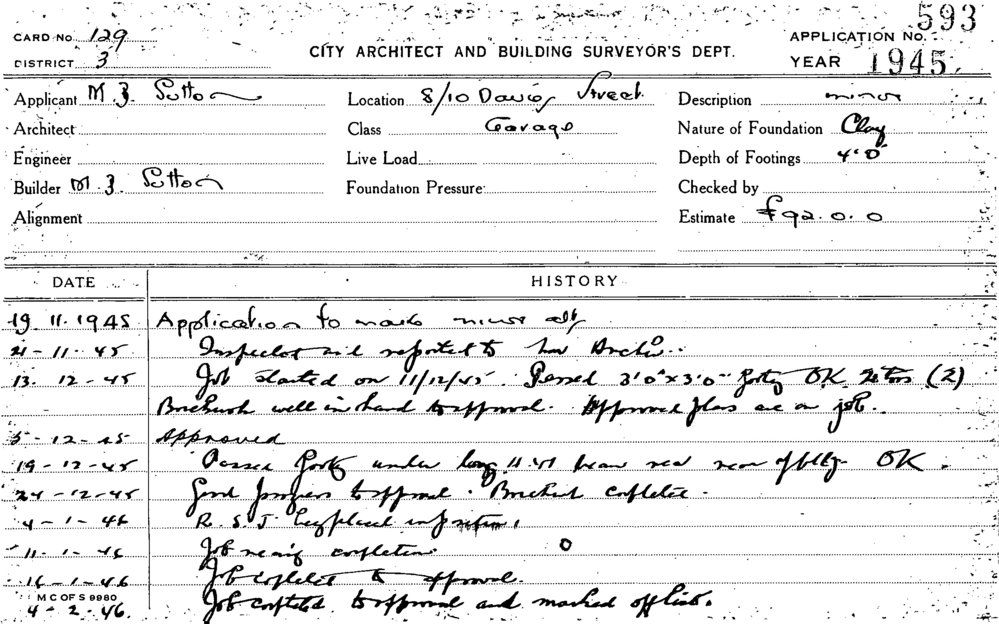 593
CARD No. 129
CITY ARCHITECT AND BUILDING SURVEYOR'S DEPT.
APPLICATION No.
DISTRICT 3
YEAR 1945
Applicant M. J. Sutton
Location 8/10 Davies Street
Description minor
Architect
Class Garage
Nature of Foundation Clay
Engineer
Live Load
Depth of Footings 4'0"
Builder M. J. Sutton
Foundation Pressure
Checked by
Alignment
Estimate £92.0.0
DATE HISTORY
19.11.1945 Application to make minor alts
21-11-45 Inspected and reported to
13.12-45 Job started on 11/12/45. Passed 3'0"x3'0" OK (2)
Brickwork well in hand to approval. Approved plans are on job.
5-12-45 Approved
19-12-45 Passed under beam near rear of bldg. OK.
24-12-45 Good progress to approval. Brickwork completed.
4-1-46 R.S.J. placed in position.
11-1-46 Job nearing completion
16-1-46 Job completed to approval.
M C OF S 9980
4-2-46. Job completed to approval and marked off list.